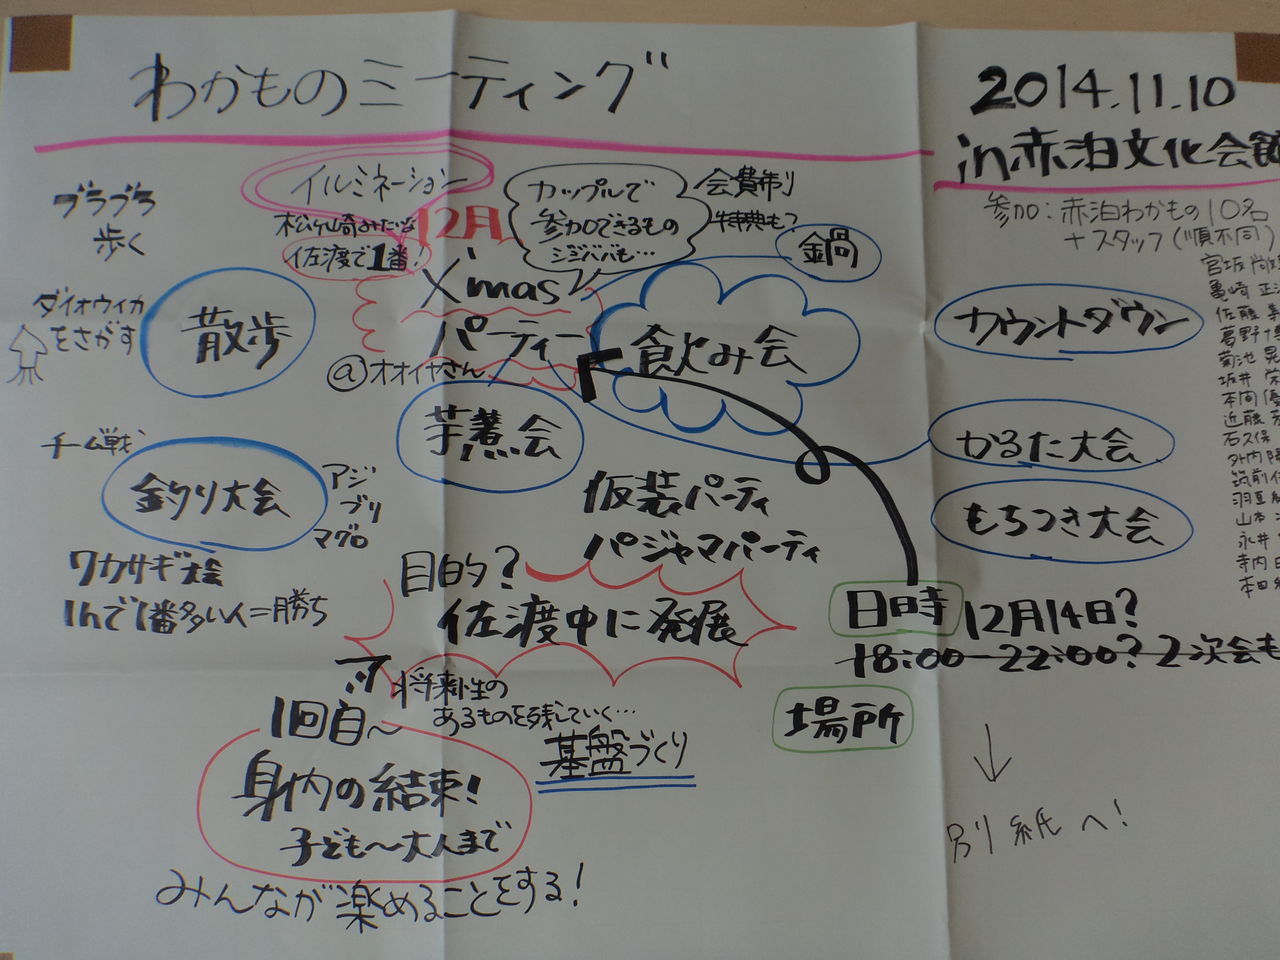 わかものミーティング
2014.11.10
in赤泊文化会館
参加：赤泊わかもの10名
＋スタッフ(順不同)
宮坂
亀崎
佐藤
葛野
菊池
坂井
本間
近藤
石久保
外内
筑前
羽豆
山本
永井
寺内
本田
ブラブラ
歩く
イルミネーション
松ヶ崎みたいな
佐渡で1番!
12月
X'mas
パーティー
@オオイヤさん
カップルで
参加できるもの
ジジババも…
会費制
特典も?
鍋
ダイオウイカ
をさがす
散歩
飲み会
芋煮会
カウントダウン
かるた大会
もちつき大会
チーム戦
釣り大会
アジ
ブリ
マグロ
ワカサギ大会
1hで1番多い人=勝ち
仮装パーティ
パジャマパーティ
目的?
佐渡中に発展
将来性の
あるものを残していく…
基盤づくり
1回目〜
身内の結束!
子ども〜大人まで
みんなが楽めることをする!
日時
12月14日?
18:00-22:00? 2次会も
場所
別紙へ!